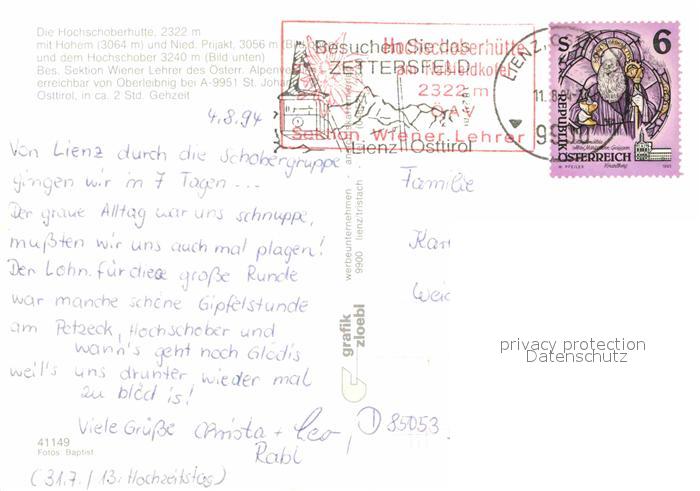 Die Hochschoberhütte, 2322 m
mit Hohem (3064 m) und Nied. Prijakt, 3056 m
und dem Hochschober 3240 m (Bild unten)
Bes. Sektion Wiener Lehrer des Österr.
erreichbar von Oberleibnig bei A-9951 St.
Osttirol, in ca. 2 Std. Gehzeit
4.8.94
Von Lienz durch die Schobergruppe
gingen wir in 7 Tagen ...
Der graue Alltag war uns schnuppe,
mußten wir uns auch mal plagen!
Der Lohn für diese große Runde
war manche schöne Gipfelstunde
am Petzeck, Hochschober und
wann's geht noch Glödis
weil's uns drunter wieder mal
zu blöd is!
Viele Grüße Christa + Leo
Rabl
(31.7./13. Hochzeitstag)
41149
Fotos: Baptist
werbeunternehmen
9900 lienz/tristach
grafik
zloebl
Besuchen Sie das
ZETTERSFELD
Lienz Osttirol
Hochschoberhütte
2322 m
ÖAV
Sektion Wiener Lehrer
LIENZ
9900
S 6
REPUBLIK
ÖSTERREICH
Familie
Kar
Weic
D 85053
privacy protection
Datenschutz